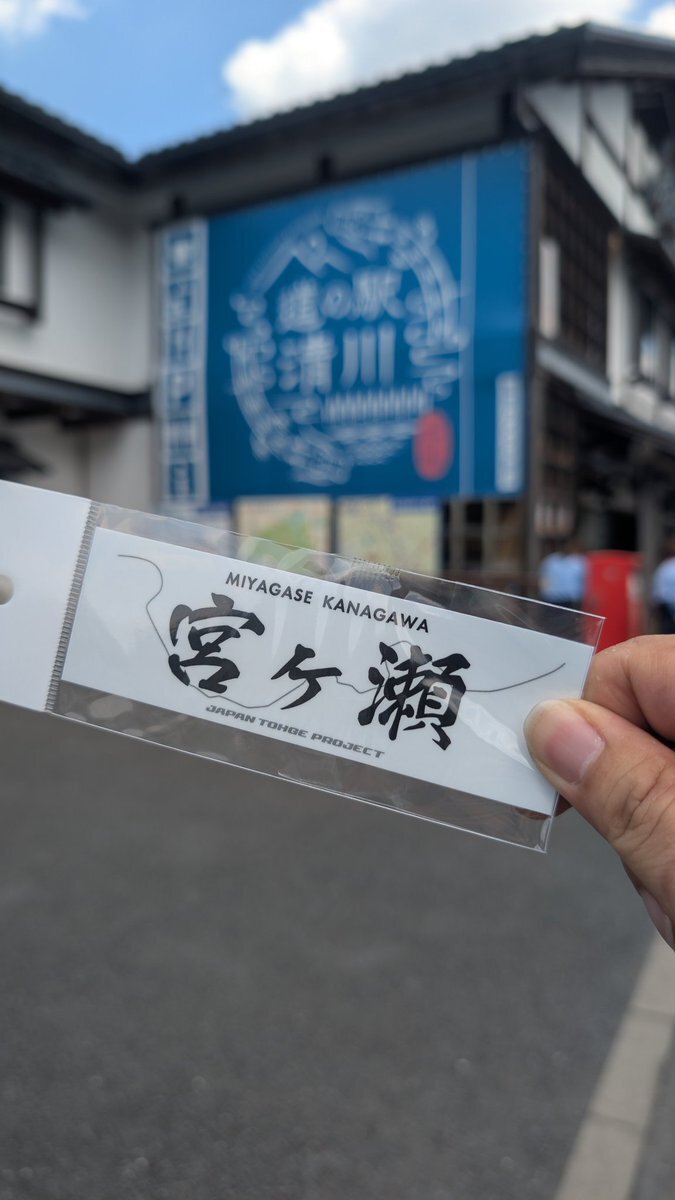 道の駅
清川
MIYAGASE KANAGAWA
宮ヶ瀬
JAPAN TOHGE PROJECT